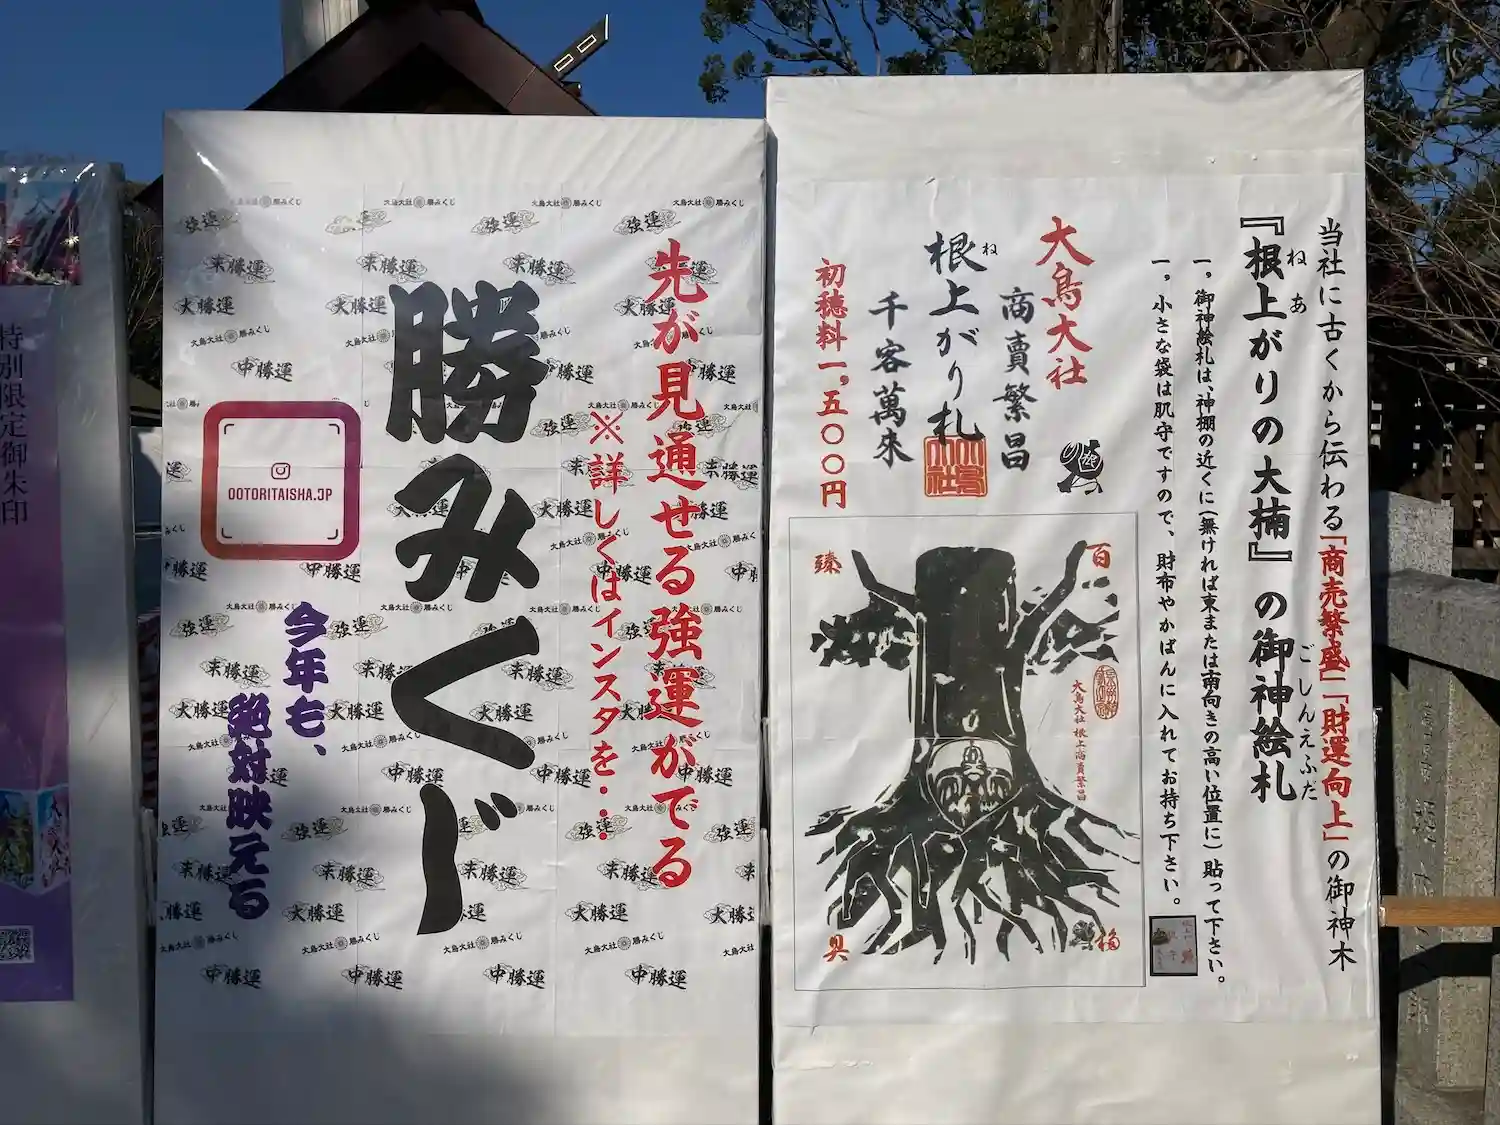 当社に古くから伝わる「商売繁盛」「財運向上」の御神木
『根上がりの大楠』の御神絵札
ねあ
ごしんえふだ
一，御神絵札は、神棚の近くに（無ければ東または南向きの高い位置に）貼って下さい。
一，小さな袋は肌守ですので、財布やかばんに入れてお持ち下さい。
大鳥大社
商賣繁昌
根上がり札
ね
千客萬来
初穂料一，五〇〇円
百
臻
福
具
大鳥大社根上商賣繁昌
先が見通せる強運がでる
※詳しくはインスタを・・・
勝みくじ
今年も、
絶対映える
OOTORITAISHA.JP
大鳥大社 勝みくじ
強運
末勝運
大勝運
大鳥大社 勝みくじ
中勝運
特別限定御朱印